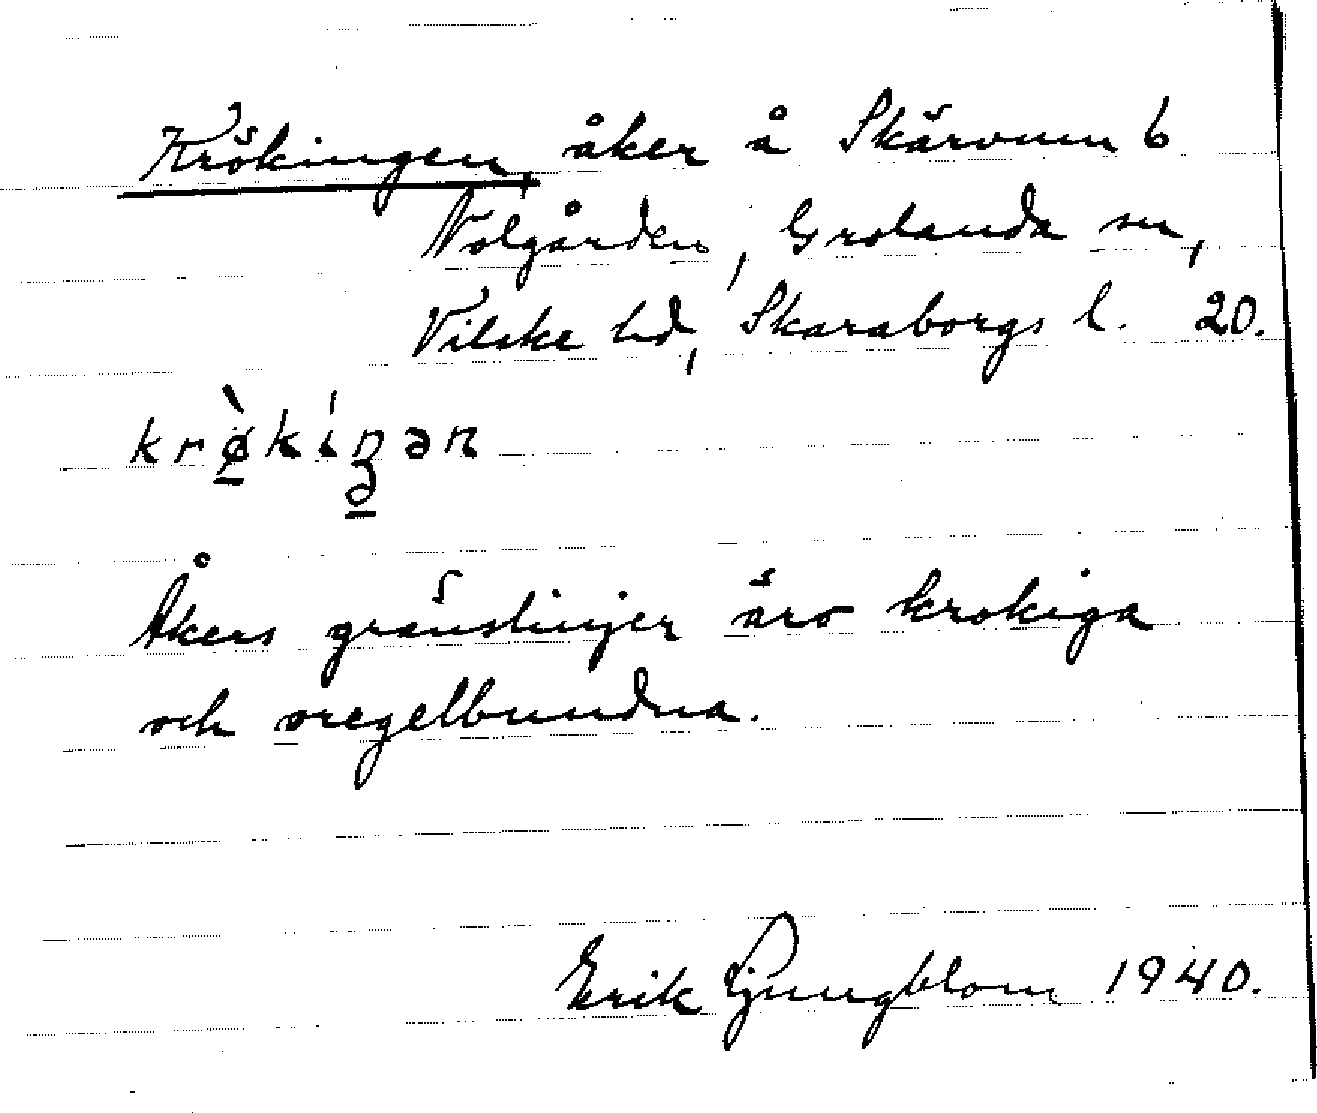 Krökingen, åker å Skärvum 6
Nolgården, Grolanda sn,
Vilske hd, Skaraborgs l. 20.
krø̀kíŋən
Åkers gränslinjer äro krokiga
och oregelbundna.
Erik Ljungblom 1940.